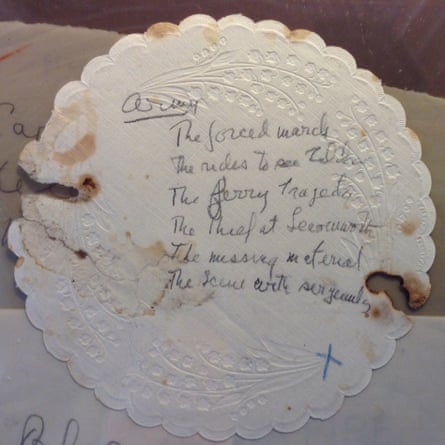 Army
The forced march
The rides to see
The ferry Tragedy
The Thief at
The missing material
The Scene with
X